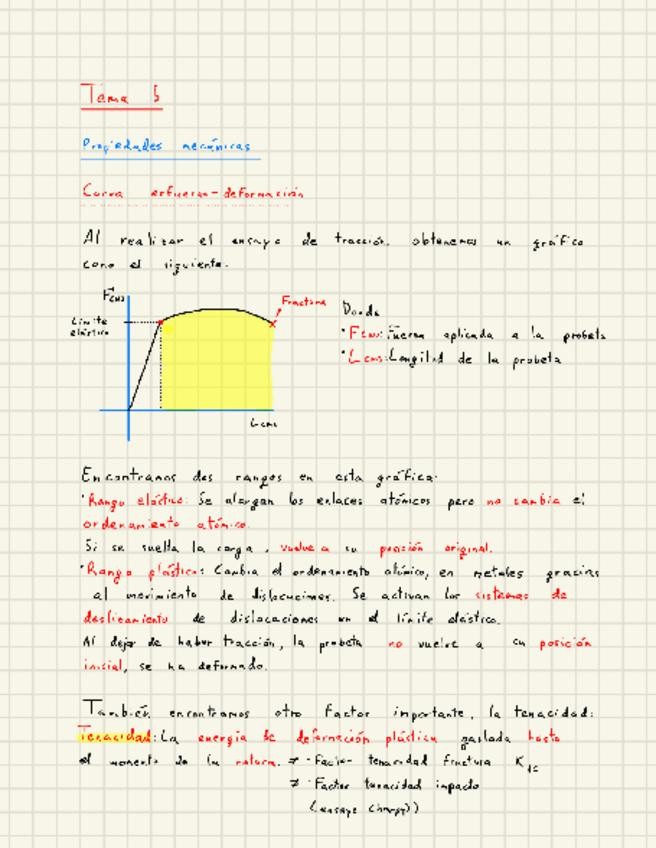 Tema 5
Propiedades mecánicas
Curva esfuerzo-deformación
Al realizar el ensayo de tracción, obtenemos un gráfico
como el siguiente.
F(N)
Fractura
Límite
elástico
L(m)
Donde
· F(N): Fuerza aplicada a la probeta
· L(m): Longitud de la probeta
Encontramos dos rangos en esta gráfica:
· Rango elástico: Se alargan los enlaces atómicos pero no cambia el
ordenamiento atómico.
Si se suelta la carga, vuelve a su posición original.
· Rango plástico: Cambia el ordenamiento atómico, en metales gracias
al movimiento de dislocaciones. Se activan los sistemas de
deslizamiento de dislocaciones en el límite elástico.
Al dejar de haber tracción, la probeta no vuelve a su posición
inicial, se ha deformado.
También encontramos otro factor importante, la tenacidad:
Tenacidad: La energía de deformación plástica gastada hasta
el momento de la rotura. ≠ · Factor tenacidad fractura K_IC
≠ · Factor tenacidad impacto
(ensayo Charpy)